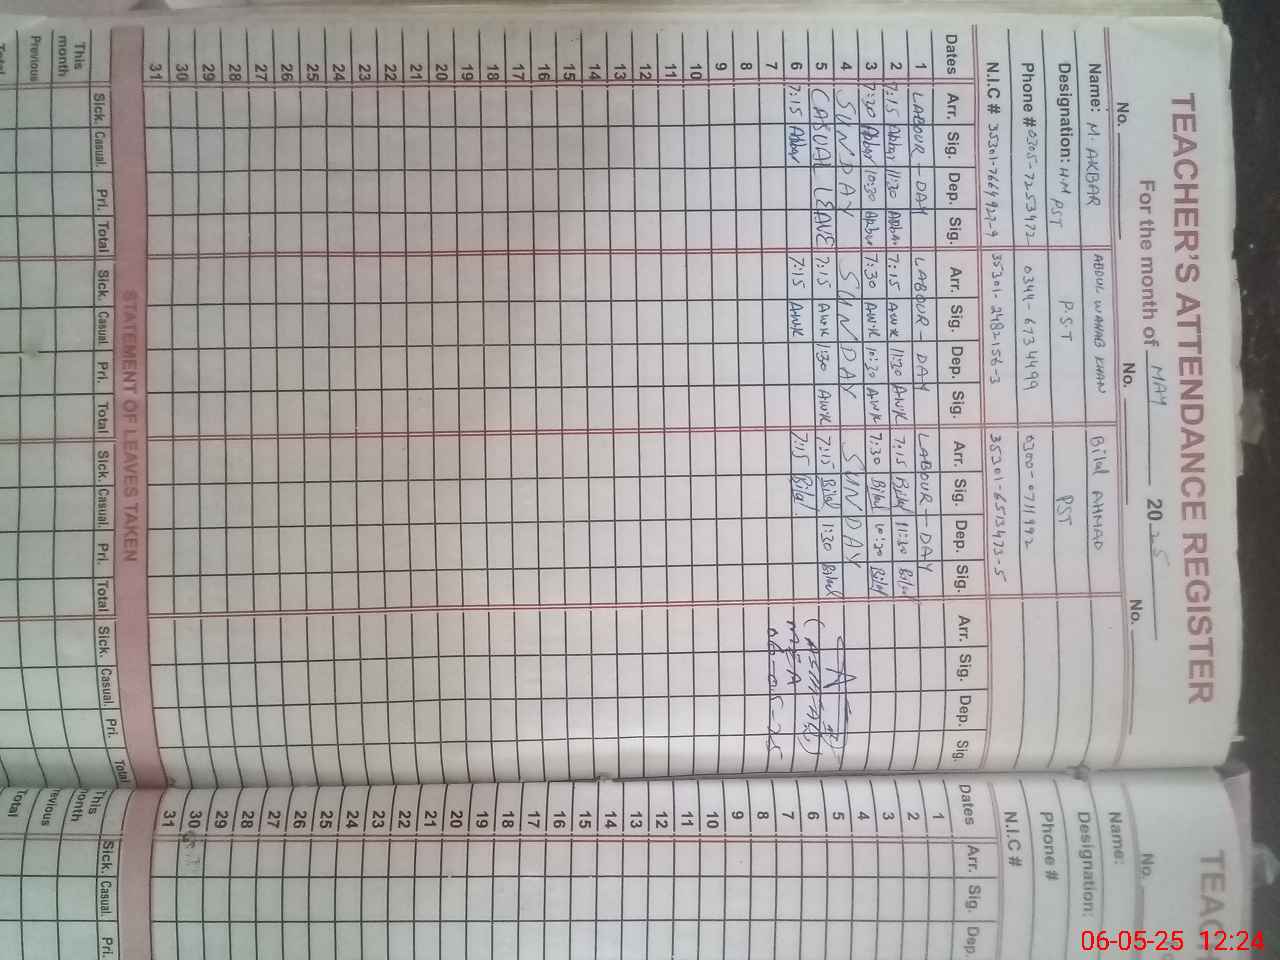 TEACHER'S ATTENDANCE REGISTER
For the month of MAY 2025
No. No. No.
Name: M. AKBAR ABDUL WAHAB KHAN Bilal AHMAD
Designation: H.M PST P.S.T PST
Phone # 0305-7253472 0344-6734499 0300-0711992
N.I.C # 35301-7664927-9 35301-2482156-3 35301-6513473-5
Dates Arr. Sig. Dep. Sig. Arr. Sig. Dep. Sig. Arr. Sig. Dep. Sig. Arr. Sig. Dep. Sig.
1 LABOUR-DAY LABOUR-DAY LABOUR-DAY
2 7:15 Akbar 11:30 Akbar 7:15 AWK 11:30 AWK 7:15 Bilal 11:30 Bilal
3 7:30 Akbar 10:30 Akbar 7:30 AWK 10:30 AWK 7:30 Bilal 10:30 Bilal
4 SUNDAY SUNDAY SUNDAY
5 CASUAL LEAVE 7:15 AWK 1:30 AWK 7:15 Bilal 1:30 Bilal
6 7:15 Akbar 7:15 AWK 7:15 Bilal
MEA
06-05-25
7
8
9
10
11
12
13
14
15
16
17
18
19
20
21
22
23
24
25
26
27
28
29
30
31
STATEMENT OF LEAVES TAKEN
Sick. Casual. Pri. Total Sick. Casual Pri. Total Sick. Casual. Pri. Total Sick. Casual. Pri. Total
This month
Previous
Total
TEACH
No.
Name:
Designation:
Phone #
N.I.C #
Dates Arr. Sig. Dep.
1
2
3
4
5
6
7
8
9
10
11
12
13
14
15
16
17
18
19
20
21
22
23
24
25
26
27
28
29
30
31
Sick. Casual. Pri.
This
onth
evious
Total
06-05-25 12:24